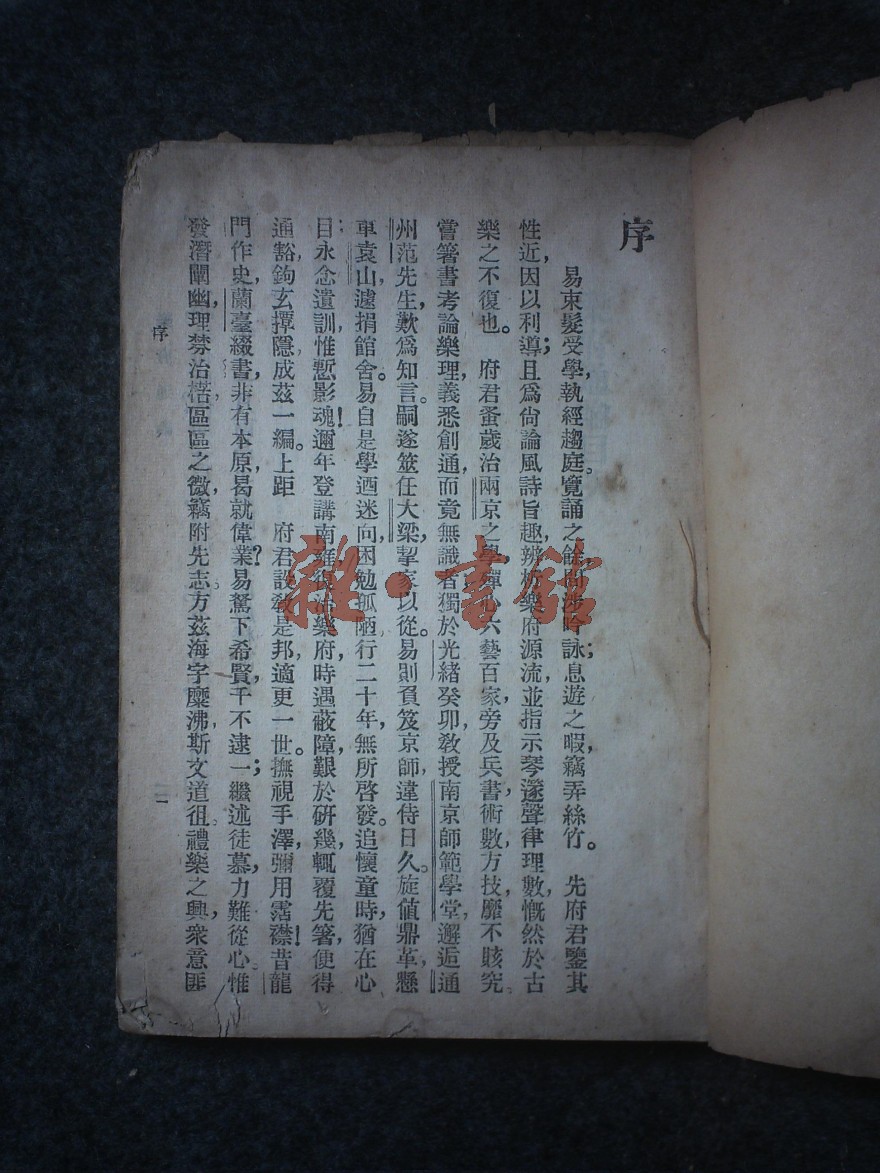 序
易束髮受學,執經趨庭。覽誦之餘,尚涉吟詠;息遊之暇,竊弄絲竹。 先府君鑒其
性近,因以利導;且為尚論風詩旨趣,辨析樂府源流,並指示琴邃聲律理數,慨然於古
樂之不復也。 府君蚤歲治兩京之學,殫心六藝百家,旁及兵書術數,方技靡不賅究。
嘗箸書考論樂理,義悉創通,而竟無識者,獨於光緒癸卯,教授南京師範學堂,邂逅通
州范先生,歎為知言。嗣遂筮任大梁,挈家以從。易則負笈京師,違侍日久。旋値鼎革,懸
車袁山,遽捐館舍。易自是學迺迷向,困勉孤陋,行二十年,無所啓發。追懷童時,猶在心
目,永念遺訓,惟慙影魂!邇年登講南雍,復治樂府,時遇蔽障,艱於研幾,輒覆先箸,使得
通豁,鉤玄撢隱,成茲一編。上距 府君設敎是邦,適更一世。撫視手澤,彌用霑襟!昔龍
門作史,蘭臺綴書,非有本原,曷就偉業?易駑下希賢,千不逮一;繼述徒慕,力難從心。惟
發潛闡幽,理棼治楛,區區之微,竊附先志。方茲海宇麋沸,斯文道徂,禮樂之興,衆意匪
序
一
雜·書館